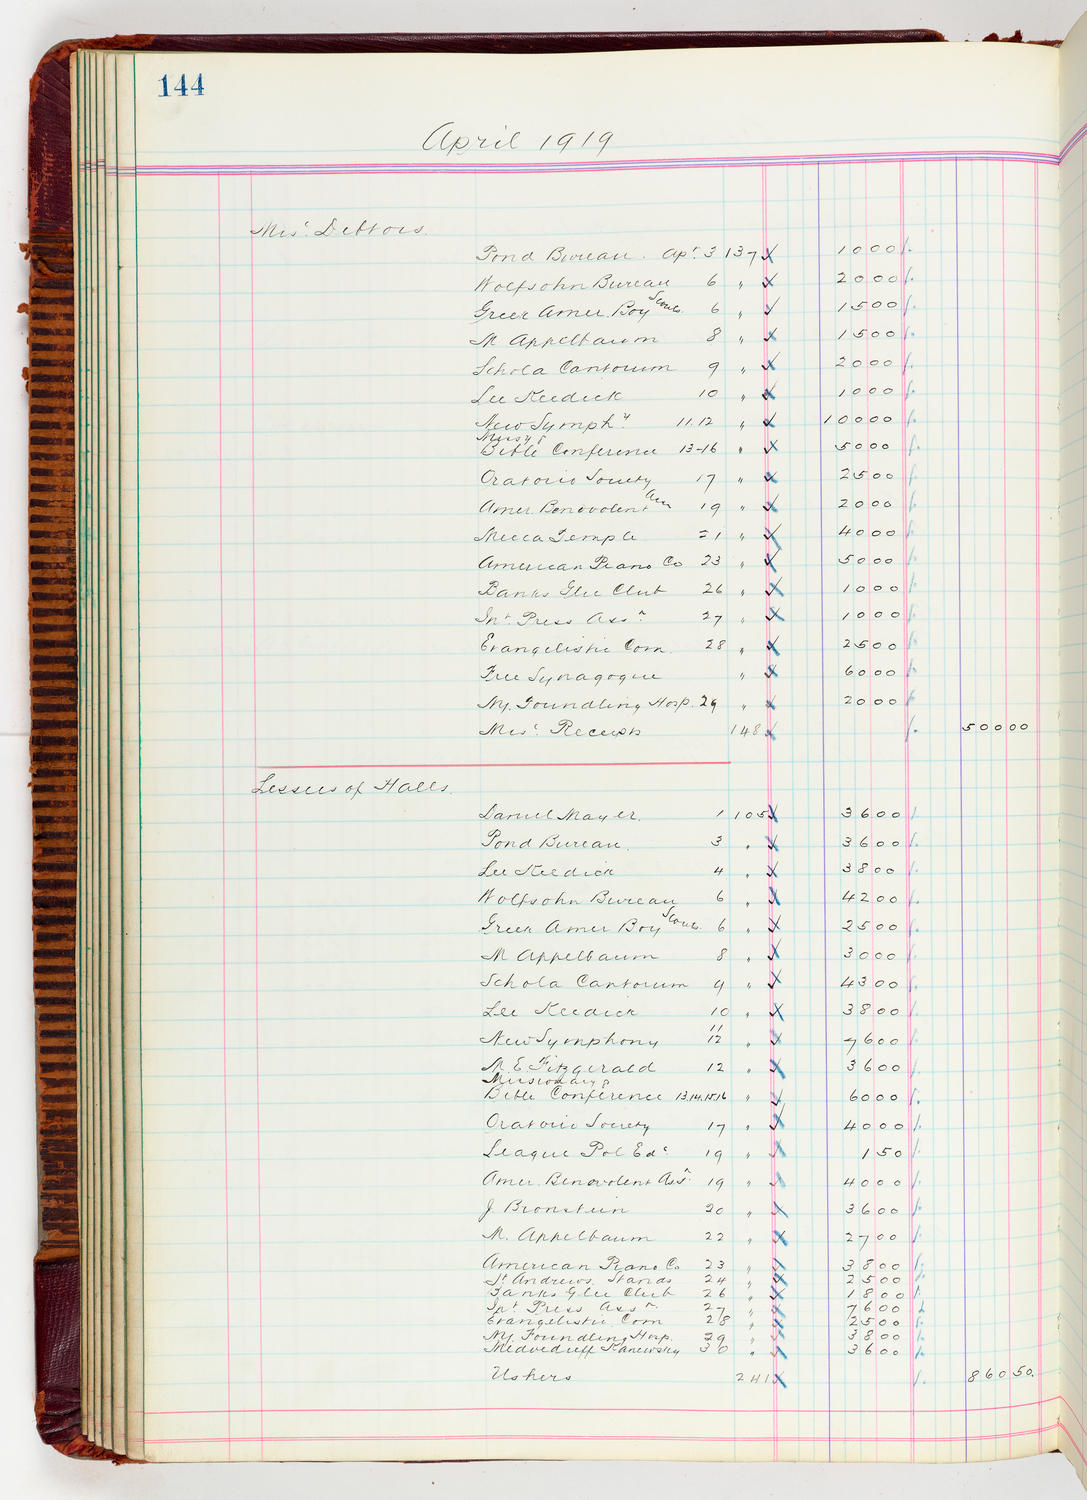 144
April 1919
Misc. Debtors.
Pond Bureau. Apr. 3 137 1000
Wolfsohn Bureau 6 " 2000
Greek Amer. Boy Scouts. 6 " 1500
M Appelbaum 8 " 1500
Schola Cantorum 9 " 2000
Lee Keedick 10 " 1000
New Symphy 11.12 " 10000
Missy &
Bible Conference 13-16 " 5000
Oratorio Society 17 " 2500
Amer Benovolent Asn 19 " 2000
Mecca Temple 21 " 4000
American Piano Co 23 " 5000
Banks Glee Club 26 " 1000
Int. Press Assn 27 " 1000
Evangelistic Com. 28 " 2500
Free Synagogue " 6000
Ny. Foundling Hosp. 29 " 2000
Misc. Receipts 148 50000
Lessees of Halls.
Daniel Mayer. 1 105 3600
Pond Bureau. 3 " 3600
Lee Keedick 4 " 3800
Wolfsohn Bureau 6 " 4200
Greek Amer Boy Scouts. 6 " 2500
M Appelbaum 8 " 3000
Schola Cantorum 9 " 4300
Lee Keedick 10 " 3800
New Symphony 11 12 " 7600
M. E. Fitzgerald 12 " 3600
Missionary &
Bible Conference 13.14.15.16 " 6000
Oratorio Society 17 " 4000
League Pol Edc 19 " 150
Amer. Benovolent Assn 19 " 4000
J. Bronstein 20 " 3600
M. Appelbaum 22 " 2700
American Piano Co 23 " 3800
St Andrews. Stands 24 " 2500
Banks Glee Club 26 " 1800
Int. Press Assn. 27 " 7600
Evangelistic Com 28 " 2500
Ny. Foundling Hosp. 29 " 3800
Medvedieff Kanewsky 30 " 3600
Ushers 241 86050.